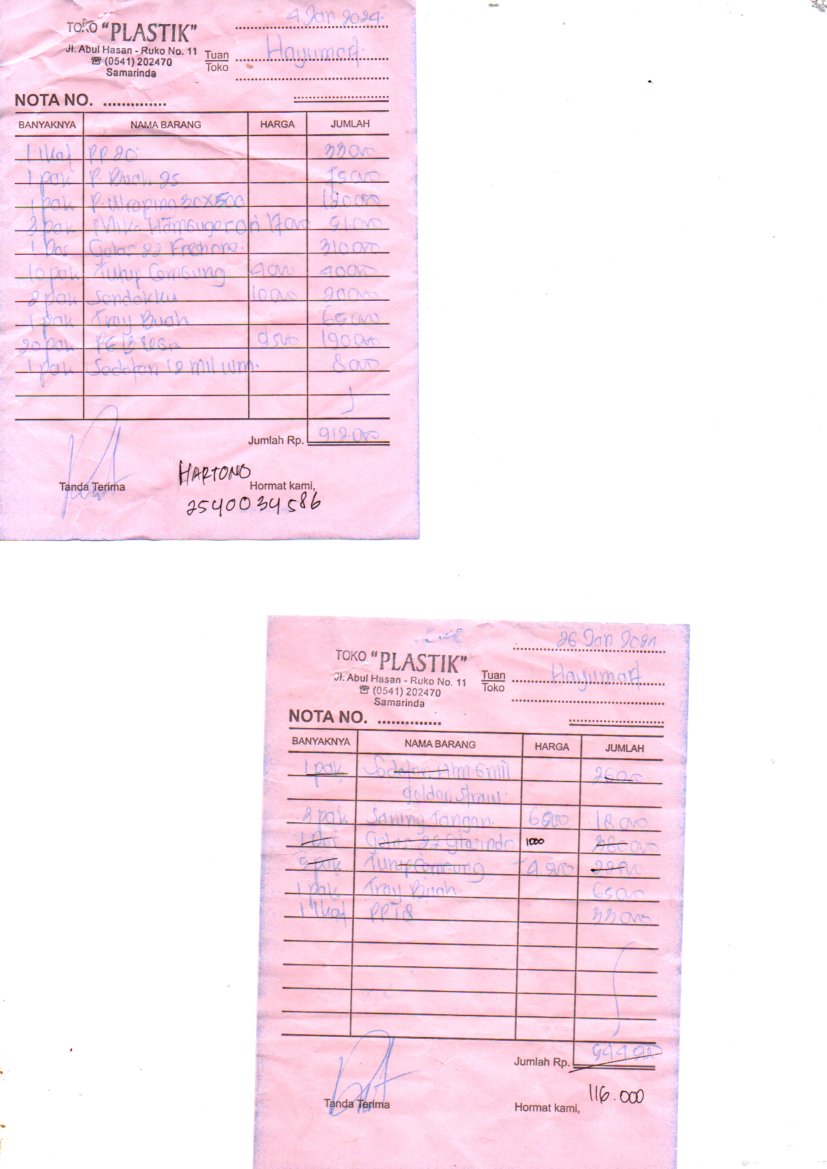 4 Jan 2024
TOKO "PLASTIK"
Jl. Abul Hasan - Ruko No. 11
☎ (0541) 202470
Samarinda
Tuan
Toko
Hayumart
NOTA NO. ..............
BANYAKNYA NAMA BARANG HARGA JUMLAH
1 Ikat PP 20 33.000
1 pak P. Buah 25 75.000
1 pak P. Wraping 30x500
3 pak Mika Hamburger 17.000 51.000
1 Dos Gelas 22 310.000
10 pak Tutup Cembung 4.000 40.000
2 pak Sendokku 10.000 20.000
1 pak Tray Buah 65.000
20 pak 9.500 190.000
1 pak Sedotan 12 mil 8.000
Jumlah Rp. 912.000
Tanda Terima
HARTONO
Hormat kami,
2540034586
26 Jan
TOKO "PLASTIK"
Jl. Abul Hasan - Ruko No. 11
☎ (0541) 202470
Samarinda
Tuan
Toko
Hayumart
NOTA NO. ..............
BANYAKNYA NAMA BARANG HARGA JUMLAH
1 pak Sedotan 6 mil
golden straw
3 pak Sarung Tangan 18.000
1 Dos Gelas 22 1000
5 pak Tutup Cembung
1 pak Tray Buah 65.000
1 Ikat PP 18 33.000
Jumlah Rp.
116.000
Tanda Terima
Hormat kami,